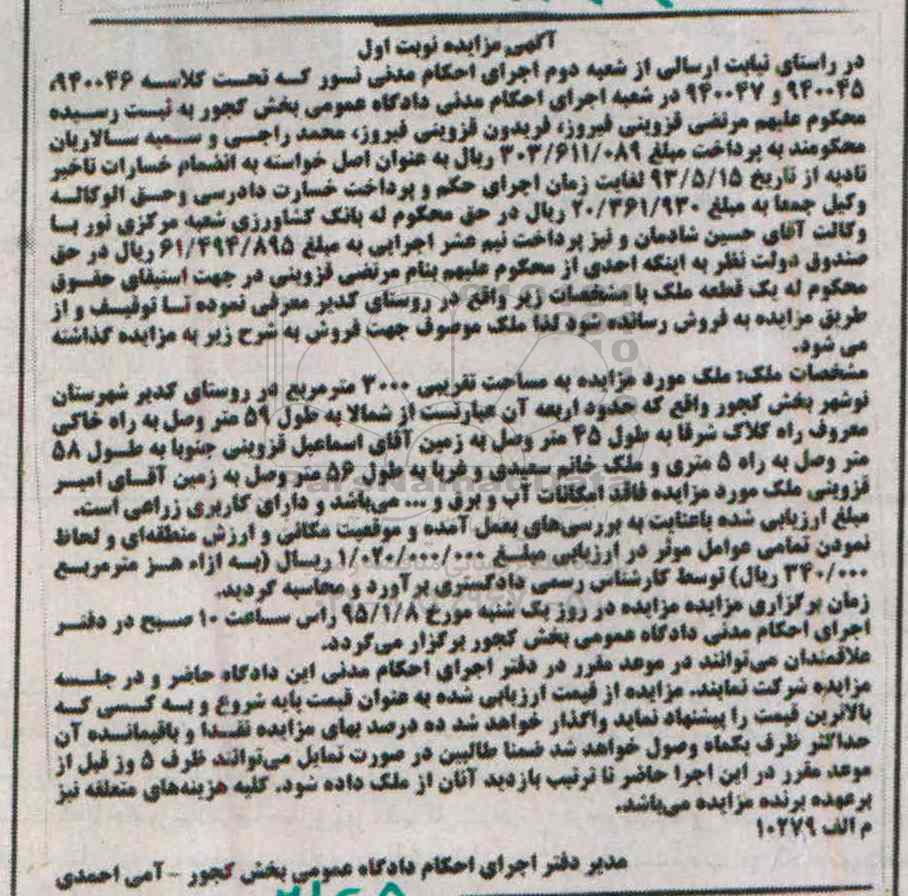 آگهی مزایده نوبت اول
در راستای نیابت ارسالی از شعبه دوم اجرای احکام مدنی نور که تحت کلاسه ۹۴۰۰۴۶،
۹۴۰۰۴۵ و ۹۴۰۰۴۷ در شعبه اجرای احکام مدنی دادگاه عمومی بخش کجور به ثبت رسیده
محکوم علیهم مرتضی قزوینی فیروز، فریدون قزوینی فیروز، محمد راجی و سمیه سالاریان
محکومند به پرداخت مبلغ ۳۰۳/۶۱۱/۰۸۹ ریال به عنوان اصل خواسته به انضمام خسارات تاخیر
تادیه از تاریخ ۹۳/۵/۱۵ لغایت زمان اجرای حکم و پرداخت خسارت دادرسی وحق الوکاله
وکیل جمعا به مبلغ ۲۰/۳۶۱/۹۳۰ ریال در حق محکوم له بانک کشاورزی شعبه مرکزی نور با
وکالت آقای حسین شادمان و نیز پرداخت نیم عشر اجرایی به مبلغ ۶۱/۴۹۴/۸۹۵ ریال در حق
صندوق دولت نظر به اینکه احدی از محکوم علیهم بنام مرتضی قزوینی در جهت استیفای حقوق
محکوم له یک قطعه ملک با مشخصات زیر واقع در روستای کدیر معرفی نموده تا توقیف و از
طریق مزایده به فروش رسانده شود لذا ملک موصوف جهت فروش به شرح زیر به مزایده گذاشته
می شود.
مشخصات ملک: ملک مورد مزایده به مساحت تقریبی ۳۰۰۰ مترمربع در روستای کدیر شهرستان
نوشهر بخش کجور واقع که حدود اربعه آن عبارتست از شمالا به طول ۵۹ متر وصل به راه خاکی
معروف راه کلاک شرقا به طول ۴۵ متر وصل به زمین آقای اسماعیل قزوینی جنوبا به طول ۵۸
متر وصل به راه ۵ متری و ملک خانم سعیدی و غربا به طول ۵۶ متر وصل به زمین آقای امیر
قزوینی ملک مورد مزایده فاقد امکانات آب و برق و ... می‌باشد و دارای کاربری زراعی است.
مبلغ ارزیابی شده باعنایت به بررسی‌های بعمل آمده و موقعیت مکانی و ارزش منطقه‌ای و لحاظ
نمودن تمامی عوامل موثر در ارزیابی مبلغ ۱/۰۲۰/۰۰۰/۰۰۰ ریال (به ازاء هز مترمربع
۳۴۰/۰۰۰ ریال) توسط کارشناس رسمی دادگستری برآورد و محاسبه گردید.
زمان برگزاری مزایده مزایده در روز یک شنبه مورخ ۹۵/۱/۸ راس ساعت ۱۰ صبح در دفتر
اجرای احکام مدنی دادگاه عمومی بخش کجور برگزار می‌گردد.
علاقمندان می‌توانند در موعد مقرر در دفتر اجرای احکام مدنی این دادگاه حاضر و در جلسه
مزایده شرکت نمایند. مزایده از قیمت ارزیابی شده به عنوان قیمت پایه شروع و به کسی که
بالاترین قیمت را پیشنهاد نماید واگذار خواهد شد ده درصد بهای مزایده نقدا و باقیمانده آن
حداکثر ظرف یکماه وصول خواهد شد ضمنا طالبین در صورت تمایل می‌توانند ظرف ۵ وز قبل از
موعد مقرر در این اجرا حاضر تا ترتیب بازدید آنان از ملک داده شود. کلیه هزینه‌های متعلقه نیز
برعهده برنده مزایده می‌باشد.
م الف ۱۰۲۷۹
مدیر دفتر اجرای احکام دادگاه عمومی بخش کجور - آمی احمدی